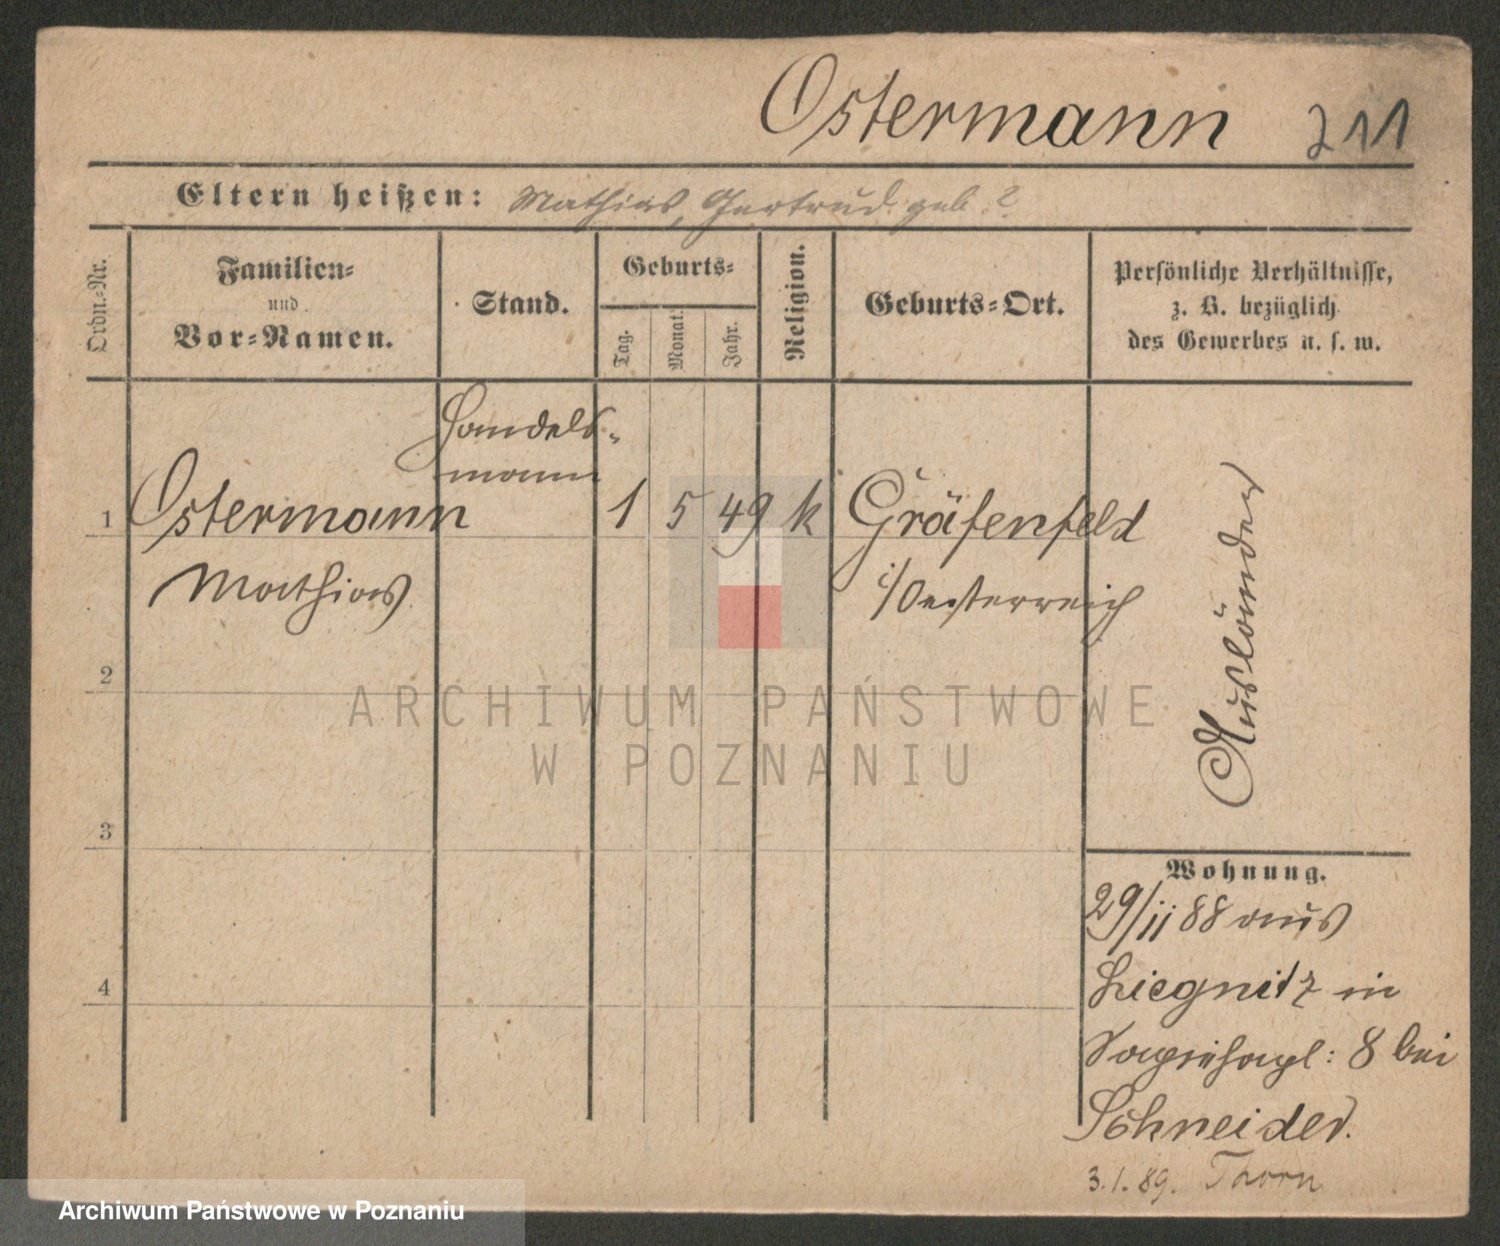 Ostermann 211
Eltern heißen: Mathias, Gertrud geb. ?
Ordn.-Nr.
Familien-
und
Vor-Namen.
Stand.
Geburts-
Tag.
Monat.
Jahr.
Religion.
Geburts-Ort.
Persönliche Verhältnisse,
z. B. bezüglich
des Gewerbes u. s. w.
Handels-
mann
1 Ostermann 1 5 49 k Gräfenfeld
Mathias i/Oesterreich
Ausländer
2
3
4
Wohnung.
29/11 88 aus
Liegnitz in
8 bei
Schneider.
3.1.89. Thorn
ARCHIWUM PAŃSTWOWE
W POZNANIU
Archiwum Państwowe w Poznaniu